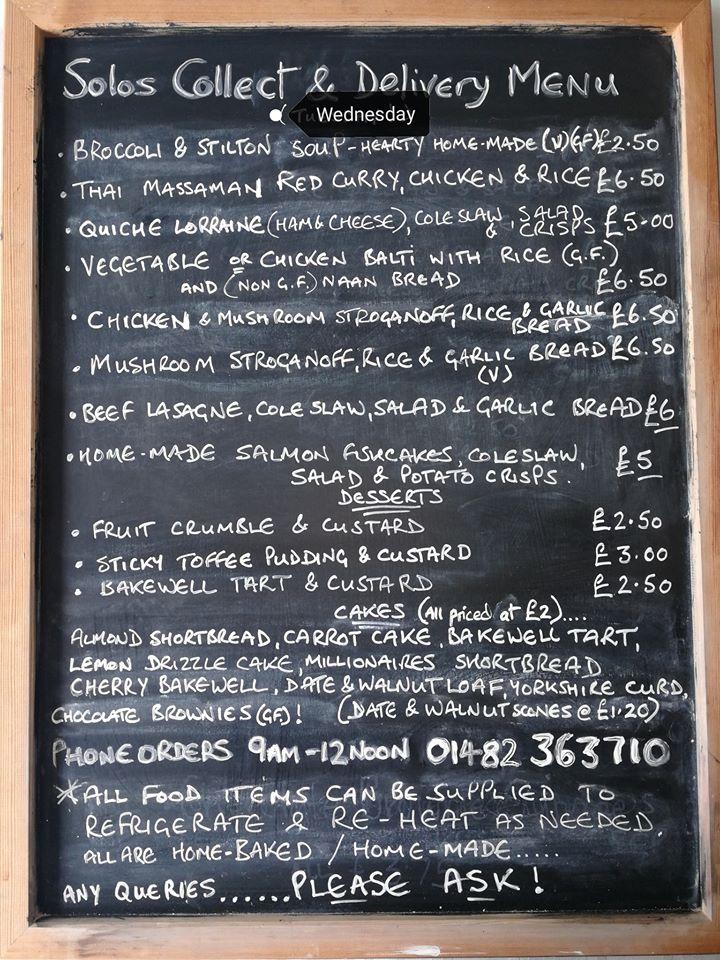 Solos Collect & Delivery MENU
Wednesday
• BROCCOLI & STILTON SOUP - HEARTY HOME-MADE (V)(GF) £2.50
• THAI MASSAMAN RED CURRY, CHICKEN & RICE £6.50
• QUICHE LORRAINE (HAM & CHEESE), COLESLAW, SALAD & CRISPS £5.00
• VEGETABLE OR CHICKEN BALTI WITH RICE (G.F.)
AND (NON G.F.) NAAN BREAD £6.50
• CHICKEN & MUSHROOM STROGANOFF, RICE & GARLIC BREAD £6.50
• MUSHROOM STROGANOFF, RICE & GARLIC BREAD £6.50
(V)
• BEEF LASAGNE, COLESLAW, SALAD & GARLIC BREAD £6
• HOME-MADE SALMON FISHCAKES, COLESLAW, £5
SALAD & POTATO CRISPS.
DESSERTS
• FRUIT CRUMBLE & CUSTARD £2.50
• STICKY TOFFEE PUDDING & CUSTARD £3.00
• BAKEWELL TART & CUSTARD £2.50
CAKES (All priced at £2)....
ALMOND SHORTBREAD, CARROT CAKE, BAKEWELL TART,
LEMON DRIZZLE CAKE, MILLIONAIRES SHORTBREAD
CHERRY BAKEWELL, DATE & WALNUT LOAF, YORKSHIRE CURD,
CHOCOLATE BROWNIES (GF)! (DATE & WALNUT SCONES @ £1.20)
PHONE ORDERS 9AM - 12 NOON 01482 363710
* ALL FOOD ITEMS CAN BE SUPPLIED TO
REFRIGERATE & RE-HEAT AS NEEDED.
ALL ARE HOME-BAKED / HOME-MADE.....
ANY QUERIES......PLEASE ASK!